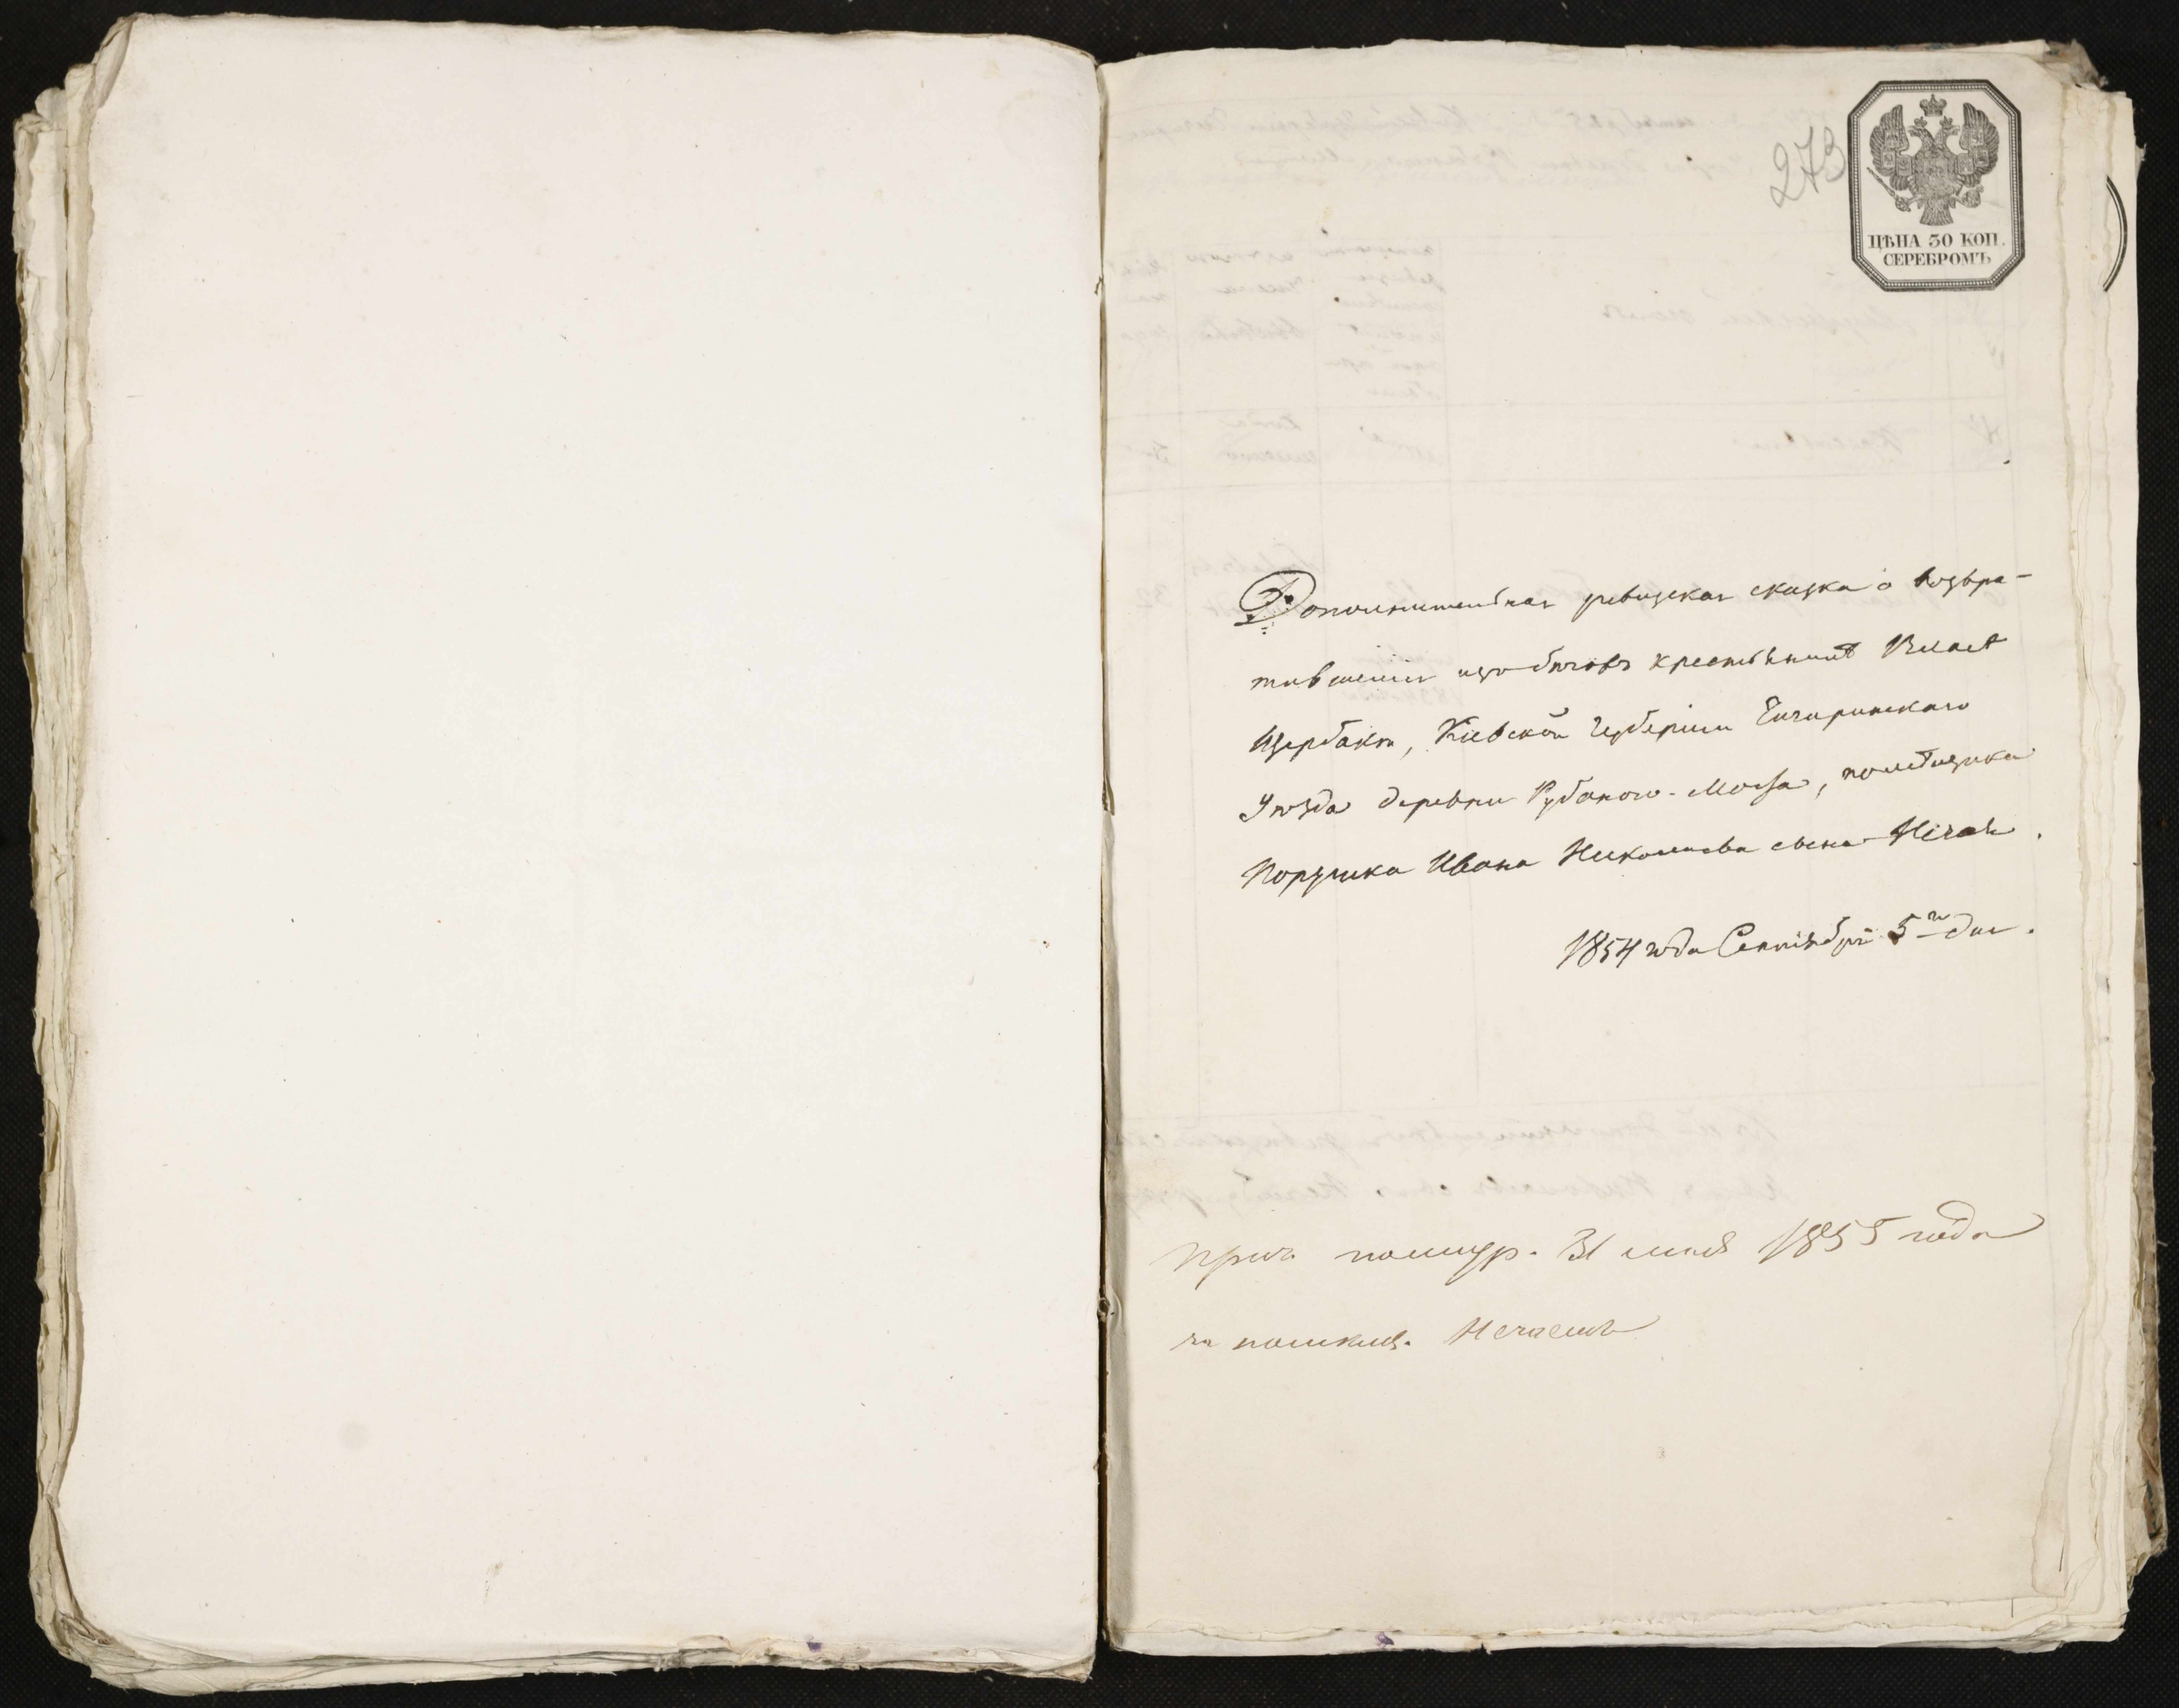 273
ЦѢНА 30 КОП.
СЕРЕБРОМЪ
Дополнительная ревизская сказка о возвра-
тившемся изъ бѣговъ крестьянинѣ Власѣ
Щербакѣ, Кіевской Губерніи Чигиринскаго
Уѣзда деревни Рубаного-Моста, помѣщика
Поручика Ивана Николаева сына Нечая.
1854 года Сентября 5го дня.
31 мая 1855 года
за Нечаемъ